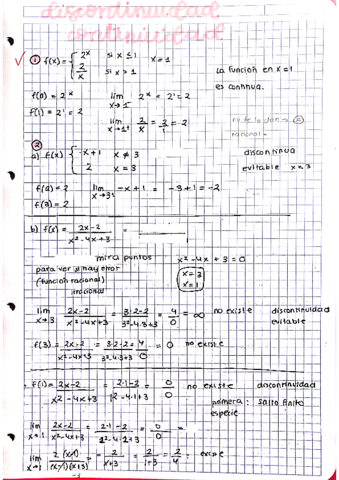 discontinuidad
continuidad
① f(x) = { 2ˣ si x ≤ 1 x = 1
2/x si x > 1
La funcion en x = 1
es continua.
f(a) = 2ˣ lim x→1⁻ 2ˣ = 2¹ = 2
f(1) = 2¹ = 2 lim x→1⁺ 2/x = 2/1 = 2
②
a) f(x) { -x+1 x ≠ 3
2 x = 3
discontinua
evitable x = 3
f(a) = 2 lim x→3 -x+1 = -3+1 = -2
f(a) = 2
b) f(x) = 2x-2 / x²-4x+3 =
mira puntos x²-4x+3 = 0
para ver si hay error
(función racional)
irracional
x = 3
x = 1
lim x→3 2x-2 / x²-4x+3 = 3·2-2 / 3²-4·3+3 = 4/0 = ∞ no existe discontinuidad
evitable
f(3) = 2x-2 / x²-4x+3 = 3·2-2 / 3²-4·3+3 = 4/0 = 0 no existe
f(1) = 2x-2 / x²-4x+3 = 2·1-2 / 1²-4·1+3 = 0/0 no existe discontinuidad
primera: salto finito
especie
lim x→1 2x-2 / x²-4x+3 = 2·1-2 / 1²-4·1+3 = 0/0 =
lim x→1 2(x-1) / (x-1)(x+3) = 2 / x+3 = 2 / 1+3 = 2/4 = existe
-3